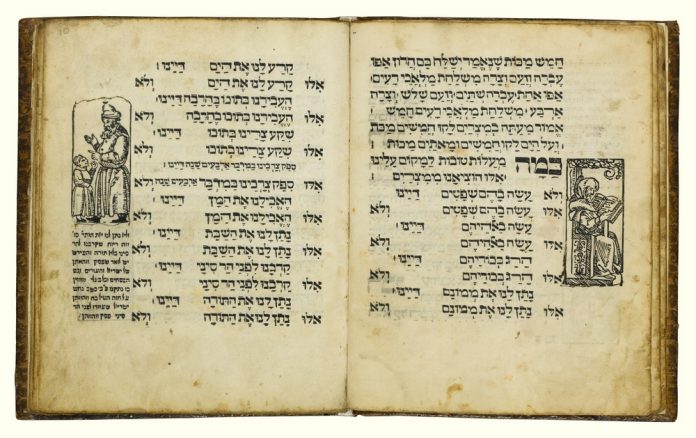 חמש מכות שנאמר ישלח בם חרון אפו
עברה וזעם וצרה משלחת מלאכי רעים:
אפו אחת עברה שתים וזעם שלש וצרה
ארבע משלחת מלאכי רעים חמש
אמור מעתה במצרים לקו חמשים מכות
ועל הים לקו חמשים ומאתים מכות
כמה מעלות טובות למקום עלינו
אלו הוציאנו ממצרים
ולא עשה בהם שפטים דיינו:
אלו עשה בהם שפטים ולא
עשה באלהיהם דיינו:
אלו עשה באלהיהם ולא
הרג בכוריהם דיינו:
אלו הרג בכוריהם ולא
נתן לנו את ממונם דיינו:
אלו נתן לנו את ממונם ולא
קרע לנו את הים דיינו:
אלו קרע לנו את הים ולא
העבירנו בתוכו בחרבה דיינו:
אלו העבירנו בתוכו בחרבה ולא
שקע צרינו בתוכו דיינו:
אלו שקע צרינו בתוכו ולא
ספק צרכינו במדבר ארבעים שנה דיינו:
אלו ספק צרכינו במדבר ארבעים שנה ולא
האכילנו את המן דיינו:
אלו האכילנו את המן ולא
נתן לנו את השבת דיינו:
אלו נתן לנו את השבת ולא
קרבנו לפני הר סיני דיינו:
אלו קרבנו לפני הר סיני ולא
נתן לנו את התורה דיינו:
אלו נתן לנו את התורה ולא
ולא נתן לנו את